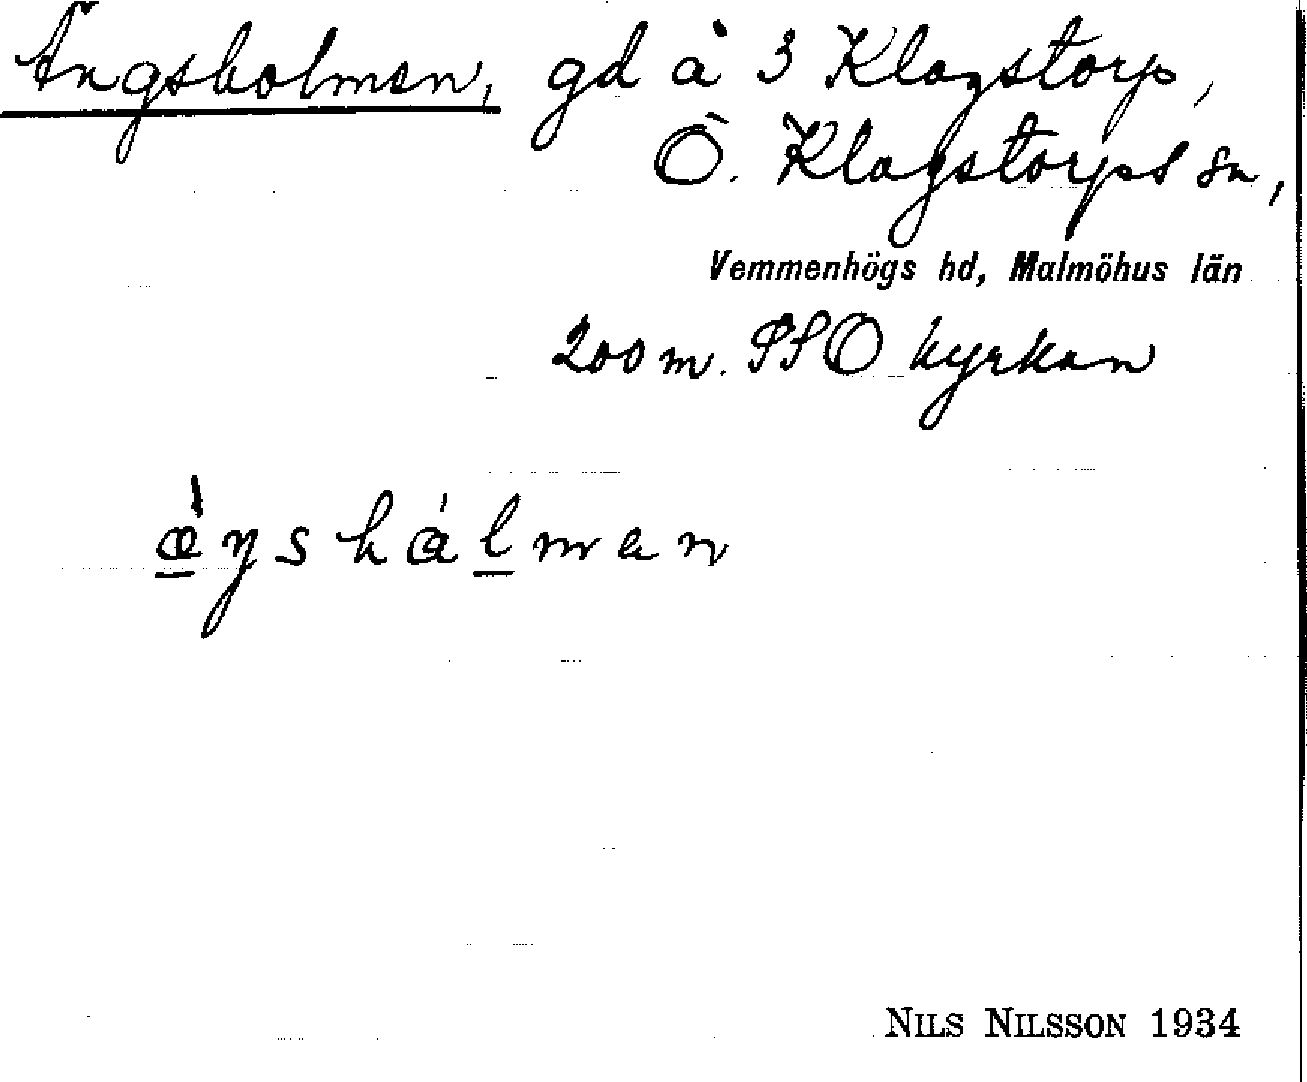 Ängsholmen, gd å 3 Klagstorp,
Ö. Klagstorps sn,
Vemmenhögs hd, Malmöhus län
200 m. SSO kyrkan
æ̀ŋshålmen
NILS NILSSON 1934